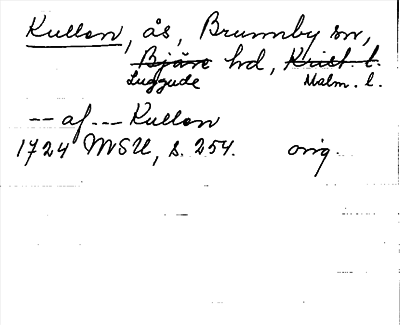 Kullen, ås, Brunnby sn,
Bjäre hd, Krist. l.
Luggude Malm. l.
-- af --- Kullen
1724 MSU, s. 254. orig.